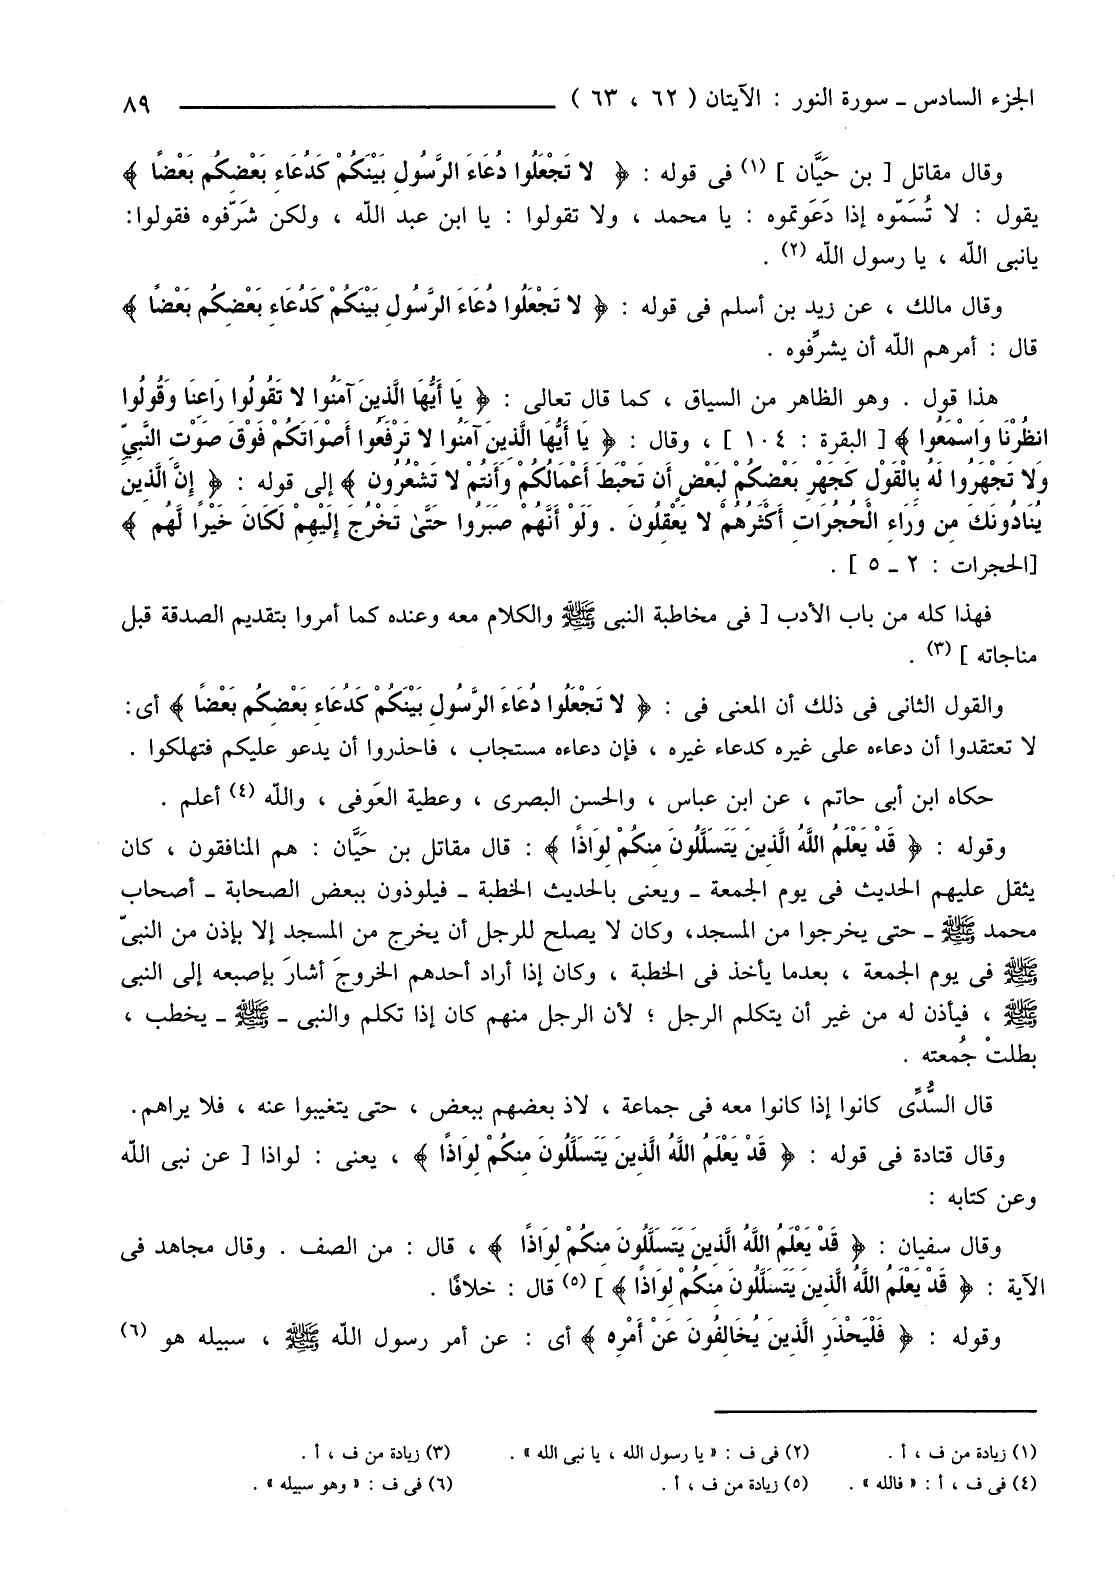 الجزء السادس ـ سورة النور : الآيتان ( ٦٢ ، ٦٣ ) ٨٩
وقال مقاتل [ بن حَيَّان ] (١) فى قوله : ﴿ لا تَجْعَلُوا دُعَاءَ الرَّسُولِ بَيْنَكُمْ كَدُعَاءِ بَعْضِكُم بَعْضًا ﴾
يقول : لا تُسَمّوه إذا دَعَوتموه : يا محمد ، ولا تقولوا : يا ابن عبد الله ، ولكن شَرّفوه فقولوا:
يانبى الله ، يا رسول الله (٢) .
وقال مالك ، عن زيد بن أسلم فى قوله : ﴿ لا تَجْعَلُوا دُعَاءَ الرَّسُولِ بَيْنَكُمْ كَدُعَاءِ بَعْضِكُم بَعْضًا ﴾
قال : أمرهم الله أن يشرِّفوه .
هذا قول . وهو الظاهر من السياق ، كما قال تعالى : ﴿ يَا أَيُّهَا الَّذِينَ آمَنُوا لا تَقُولُوا رَاعِنَا وَقُولُوا
انظُرْنَا وَاسْمَعُوا ﴾ [ البقرة : ١٠٤ ] ، وقال : ﴿ يَا أَيُّهَا الَّذِينَ آمَنُوا لا تَرْفَعُوا أَصْوَاتَكُمْ فَوْقَ صَوْتِ النَّبِيِّ
وَلا تَجْهَرُوا لَهُ بِالْقَوْلِ كَجَهْرِ بَعْضِكُمْ لِبَعْضٍ أَن تَحْبَطَ أَعْمَالُكُمْ وَأَنتُمْ لا تَشْعُرُون ﴾ إلى قوله : ﴿ إِنَّ الَّذِينَ
يُنَادُونَكَ مِن وَرَاءِ الْحُجُرَاتِ أَكْثَرُهُمْ لا يَعْقِلُونَ . وَلَوْ أَنَّهُمْ صَبَرُوا حَتَّىٰ تَخْرُجَ إِلَيْهِمْ لَكَانَ خَيْرًا لَّهُم ﴾
[الحجرات : ٢ ـ ٥ ] .
فهذا كله من باب الأدب [ فى مخاطبة النبى ﷺ والكلام معه وعنده كما أمروا بتقديم الصدقة قبل
مناجاته ] (٣) .
والقول الثانى فى ذلك أن المعنى فى : ﴿ لا تَجْعَلُوا دُعَاءَ الرَّسُولِ بَيْنَكُمْ كَدُعَاءِ بَعْضِكُم بَعْضًا ﴾ أى:
لا تعتقدوا أن دعاءه على غيره كدعاء غيره ، فإن دعاءه مستجاب ، فاحذروا أن يدعو عليكم فتهلكوا .
حكاه ابن أبى حاتم ، عن ابن عباس ، والحسن البصرى ، وعطية العَوفى ، والله (٤) أعلم .
وقوله : ﴿ قَدْ يَعْلَمُ اللَّهُ الَّذِينَ يَتَسَلَّلُونَ مِنكُمْ لِوَاذًا ﴾ : قال مقاتل بن حَيَّان : هم المنافقون ، كان
يثقل عليهم الحديث فى يوم الجمعة ـ ويعنى بالحديث الخطبة ـ فيلوذون ببعض الصحابة ـ أصحاب
محمد ﷺ ـ حتى يخرجوا من المسجد، وكان لا يصلح للرجل أن يخرج من المسجد إلا بإذن من النبىّ
ﷺ فى يوم الجمعة ، بعدما يأخذ فى الخطبة ، وكان إذا أراد أحدهم الخروجَ أشارَ بإصبعه إلى النبى
ﷺ ، فيأذن له من غير أن يتكلم الرجل ؛ لأن الرجل منهم كان إذا تكلم والنبى ـ ﷺ ـ يخطب ،
بطلتْ جُمعته .
قال السُّدِّى كانوا إذا كانوا معه فى جماعة ، لاذ بعضهم ببعض ، حتى يتغيبوا عنه ، فلا يراهم.
وقال قتادة فى قوله : ﴿ قَدْ يَعْلَمُ اللَّهُ الَّذِينَ يَتَسَلَّلُونَ مِنكُمْ لِوَاذًا ﴾ ، يعنى : لواذا [ عن نبى الله
وعن كتابه :
وقال سفيان : ﴿ قَدْ يَعْلَمُ اللَّهُ الَّذِينَ يَتَسَلَّلُونَ مِنكُمْ لِوَاذًا ﴾ ، قال : من الصف . وقال مجاهد فى
الآية : ﴿ قَدْ يَعْلَمُ اللَّهُ الَّذِينَ يَتَسَلَّلُونَ مِنكُمْ لِوَاذًا ﴾ ] (٥) قال : خلافًا .
وقوله : ﴿ فَلْيَحْذَرِ الَّذِينَ يُخَالِفُونَ عَنْ أَمْرِهِ ﴾ أى : عن أمر رسول الله ﷺ ، سبيله هو (٦)
(١) زيادة من ف ، أ . (٢) فى ف : « يا رسول الله ، يا نبى الله » . (٣) زيادة من ف ، أ .
(٤) فى ف ، أ : « فالله » . (٥) زيادة من ف ، أ . (٦) فى ف : « وهو سبيله » .